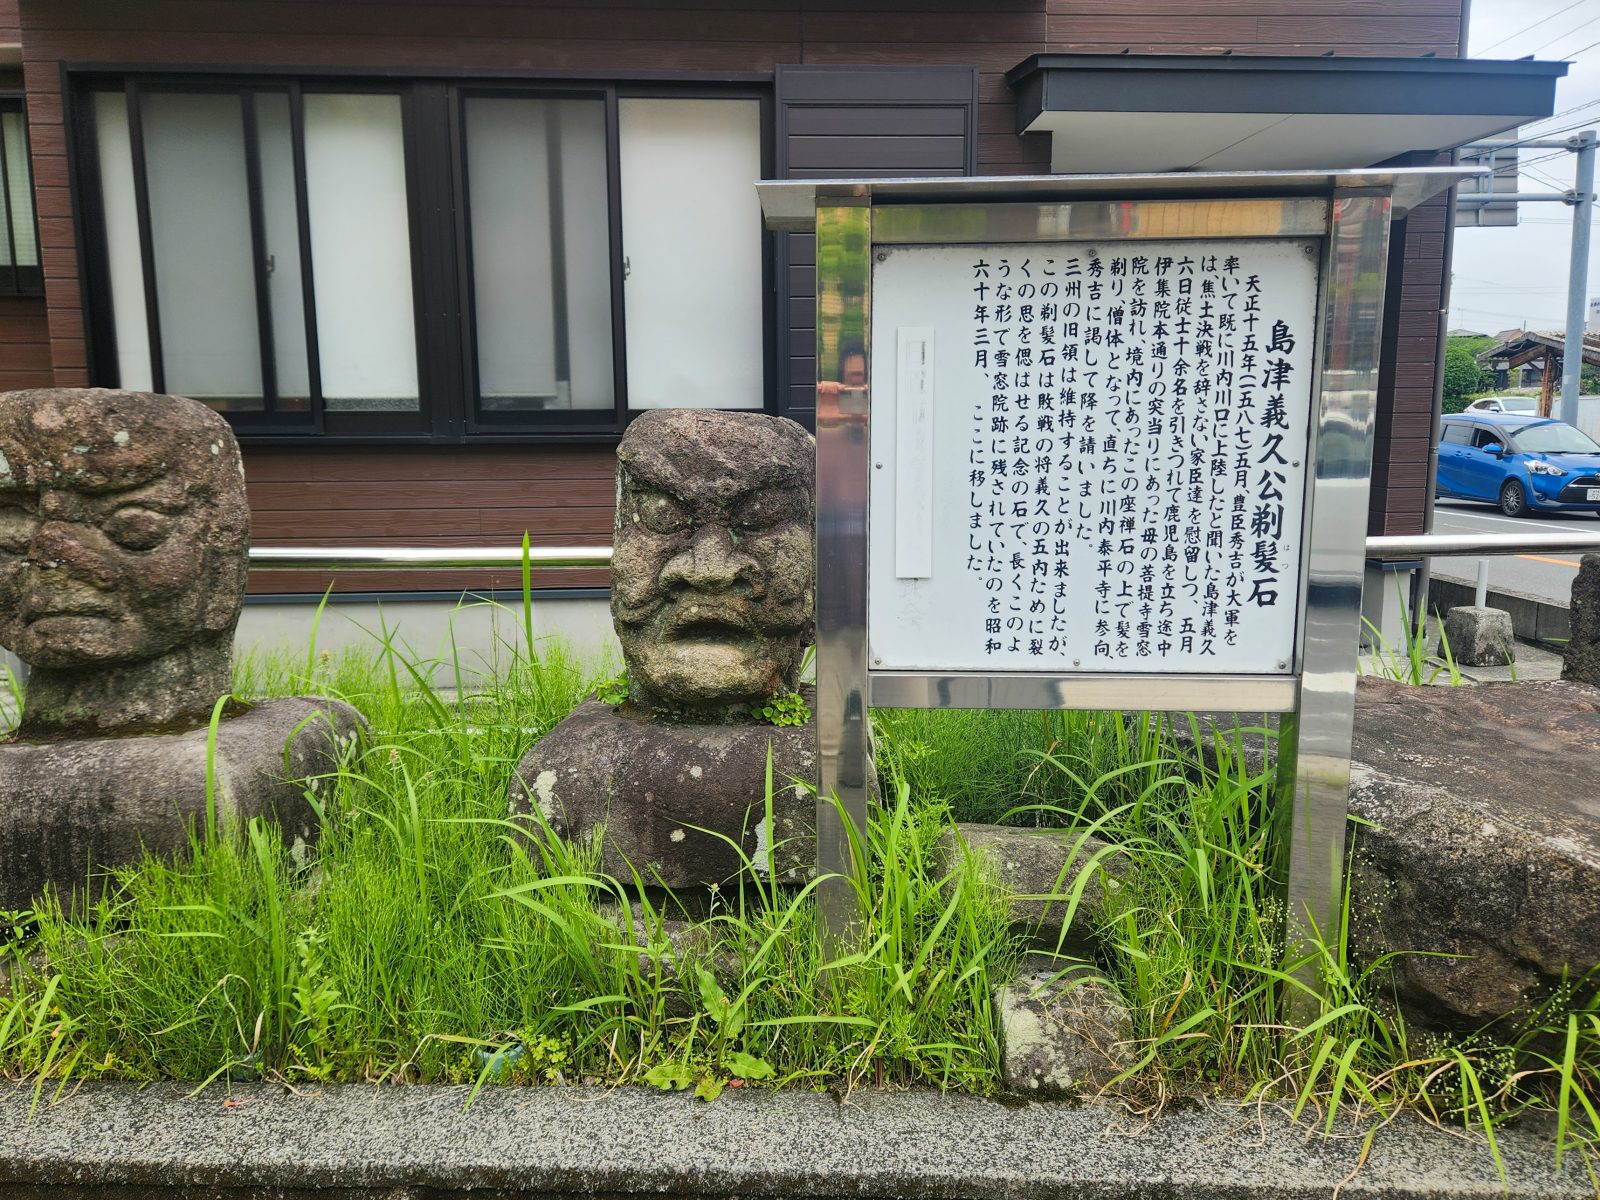 島津義久公剃髪石
はつ
天正十五年(一五八七)五月、豊臣秀吉が大軍を
率いて既に川内川口に上陸したと聞いた島津義久
は、焦土決戦を辞さない家臣達を慰留しつ、五月
六日従士十余名を引きつれて鹿児島を立ち途中
伊集院本通りの突当りにあった母の菩提寺雪窓
院を訪れ、境内にあったこの座禅石の上で髪を
剃り、僧体となって、直ちに川内泰平寺に参向、
秀吉に謁して降を請いました。
三州の旧領は維持することが出来ましたが、
この剃髪石は敗戦の将義久の五内ために裂
くの思を偲はせる記念の石で、長くこのよ
うな形で雪窓院跡に残されていたのを昭和
六十年三月、ここに移しました。